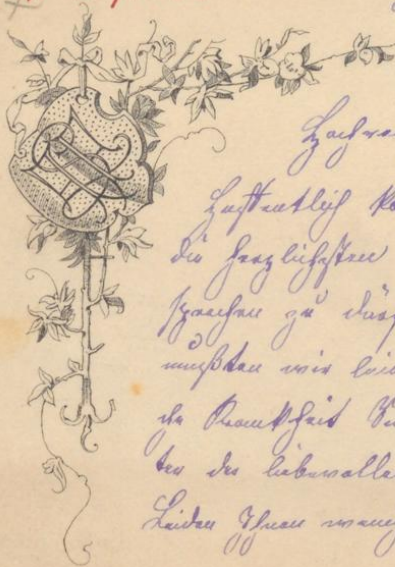 Hochver
Hoffentlich ko
die herzlichsten
sprechen zu dürf
mußten wir lei
die Krankheit
ter der liebevolle
Leiden Ihnen wenig